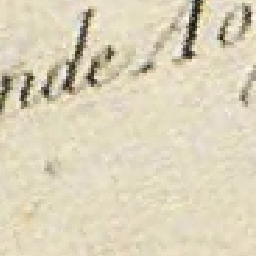 nde Ao